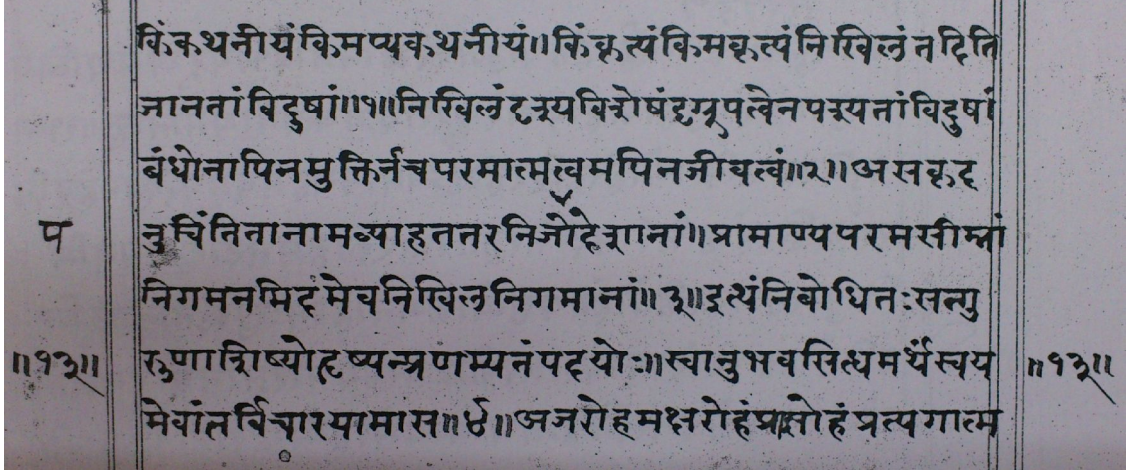 किंकथनीयंकिमप्यकथनीयं॥किंकृत्यंकिमकृत्यंनिखिलंतदिति
जानतांविदुषां॥१॥निखिलंदृश्यविशेषंदृग्रूपत्वेनपश्यतांविदुषां
बंधोनापिनमुक्तिर्नचपरमात्मत्वमपिनजीवत्वं॥२॥असकृद
नुचिंतितानामव्याहततरनिजोंदेशानां॥प्रामाण्यपरमसीम्नां
प
निगमनमिदमेवनिखिलनिगमानां॥३॥इत्थंनिबोधितःसन्गु
॥१३॥
रुणाशिष्योदृष्यन्प्रणम्यतंपदयोः॥स्वानुभवसिध्धमर्थंस्वय
॥१३॥
मेवांतर्विचारयामास॥४॥अजरोहमक्षरोहंप्राज्ञोहंप्रत्यगात्म